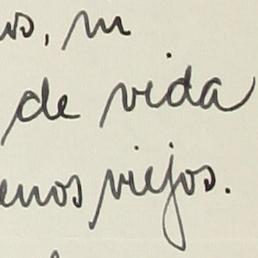 os, ni
de vida
enos viejos.